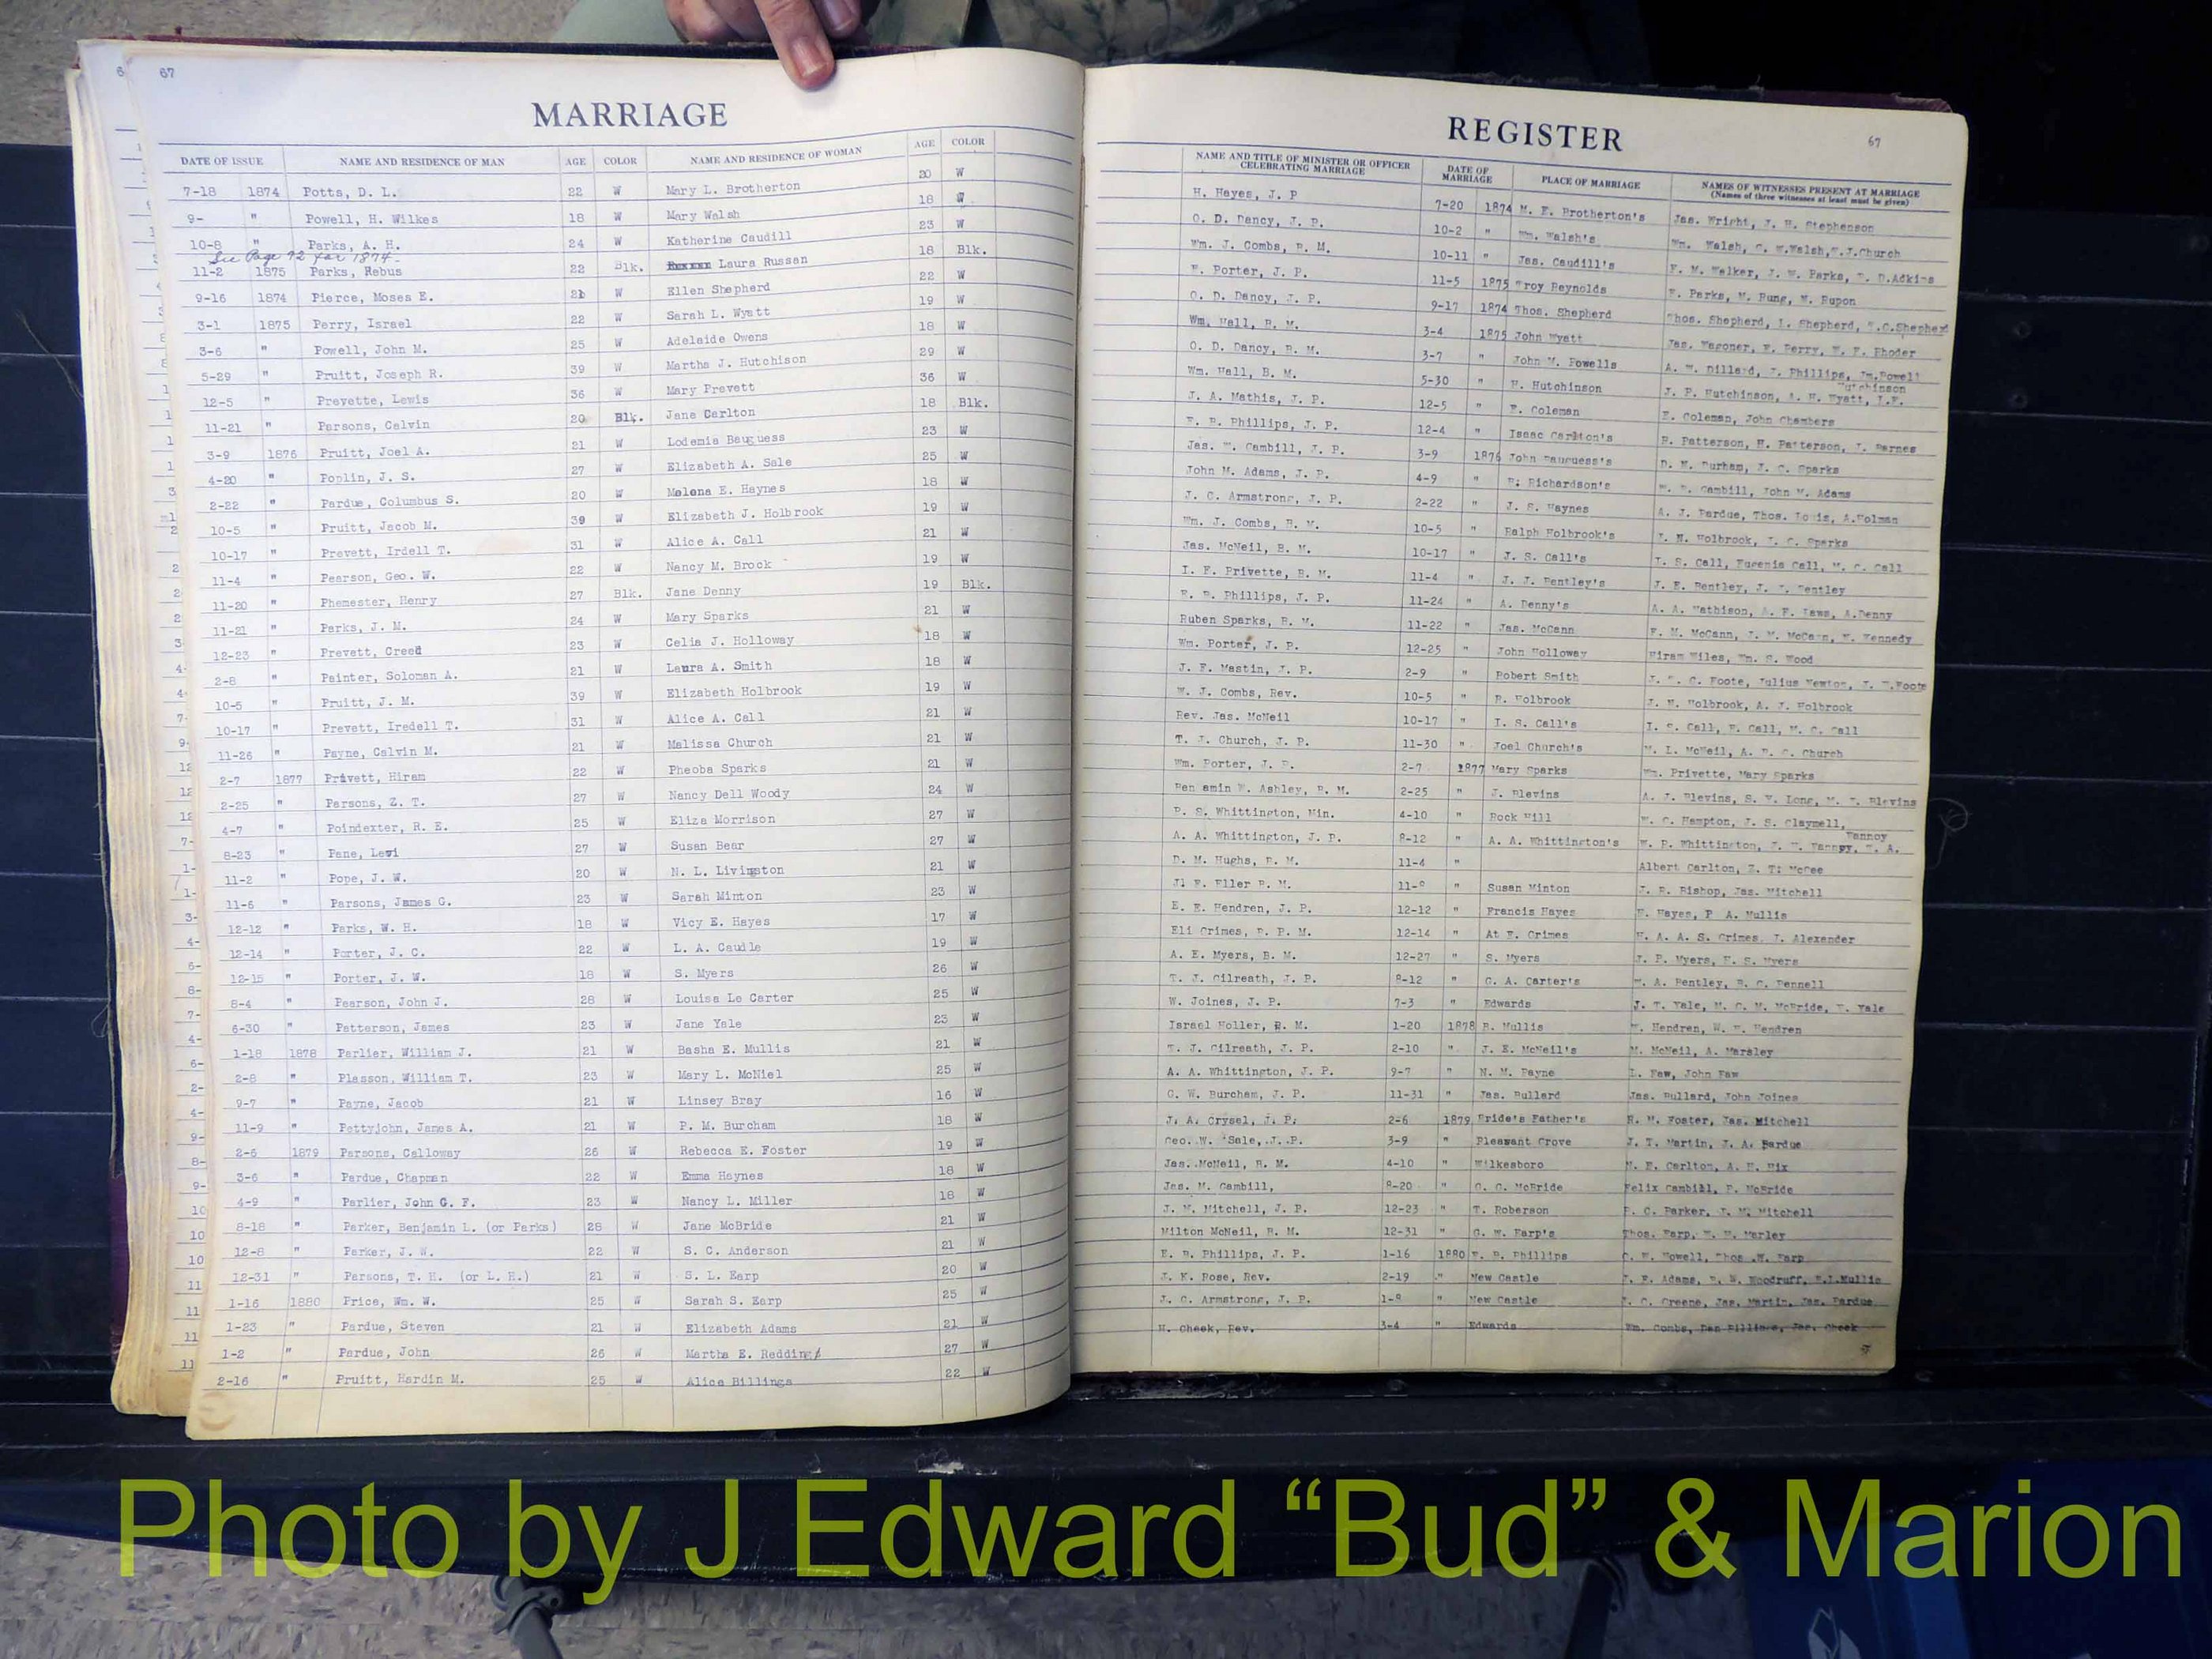 6
67
MARRIAGE
DATE OF ISSUE NAME AND RESIDENCE OF MAN AGE COLOR NAME AND RESIDENCE OF WOMAN AGE COLOR
7-18 1874 Potts, D. L. 22 W Mary L. Brotherton 20 W
9- " Powell, H. Wilkes 18 W Mary Walsh 18 W
10-8 " Parks, A. H. 24 W Katherine Caudill 23 W
See Page 72 for 1874-
11-2 1875 Parks, Rebus 22 Blk. Laura Russan 18 Blk.
9-16 1874 Pierce, Moses E. 21 W Ellen Shepherd 22 W
3-1 1875 Perry, Israel 22 W Sarah L. Wyatt 19 W
3-6 " Powell, John M. 25 W Adelaide Owens 18 W
5-29 " Pruitt, Joseph R. 39 W Martha J. Hutchison 29 W
12-5 " Prevette, Lewis 36 W Mary Prevett 36 W
11-21 " Parsons, Calvin 20 Blk. Jane Carlton 18 Blk.
3-9 1876 Pruitt, Joel A. 21 W Lodemia Bauguess 23 W
4-20 " Poplin, J. S. 27 W Elizabeth A. Sale 25 W
2-22 " Pardue, Columbus S. 20 W Melona E. Haynes 18 W
10-5 " Pruitt, Jacob M. 39 W Elizabeth J. Holbrook 19 W
10-17 " Prevett, Irdell T. 31 W Alice A. Call 21 W
11-4 " Pearson, Geo. W. 22 W Nancy M. Brock 19 W
11-20 " Phemester, Henry 27 Blk. Jane Denny 19 Blk.
11-21 " Parks, J. M. 24 W Mary Sparks 21 W
12-23 " Prevett, Creed 23 W Celia J. Holloway 18 W
2-8 " Painter, Soloman A. 21 W Laura A. Smith 18 W
10-5 " Pruitt, J. M. 39 W Elizabeth Holbrook 19 W
10-17 " Prevett, Iredell T. 31 W Alice A. Call 21 W
11-26 " Payne, Calvin M. 21 W Malissa Church 21 W
2-7 1877 Privett, Hiram 22 W Pheoba Sparks 21 W
2-25 " Parsons, Z. T. 27 W Nancy Dell Woody 24 W
4-7 " Poindexter, R. E. 25 W Eliza Morrison 27 W
8-23 " Pane, Levi 27 W Susan Bear 27 W
11-2 " Pope, J. W. 20 W N. L. Livington 21 W
11-6 " Parsons, James G. 23 W Sarah Minton 23 W
12-12 " Parks, W. H. 18 W Vicy E. Hayes 17 W
12-14 " Porter, J. C. 22 W L. A. Caudle 19 W
12-15 " Porter, J. W. 18 W S. Myers 26 W
8-4 " Pearson, John J. 28 W Louisa Le Carter 25 W
6-30 " Patterson, James 23 W Jane Yale 23 W
1-18 1878 Parlier, William J. 21 W Basha E. Mullis 21 W
2-8 " Plasson, William T. 23 W Mary L. McNiel 25 W
9-7 " Payne, Jacob 21 W Linsey Bray 16 W
11-9 " Pettyjohn, James A. 21 W P. M. Burcham 18 W
2-6 1879 Parsons, Calloway 26 W Rebecca E. Foster 19 W
3-6 " Pardue, Chapman 22 W Emma Haynes 18 W
4-9 " Parlier, John G. F. 23 W Nancy L. Miller 18 W
8-18 " Parker, Benjamin L. (or Parks) 28 W Jane McBride 21 W
12-8 " Parker, J. W. 22 W S. C. Anderson 21 W
12-31 " Parsons, T. H. (or L. H.) 21 W S. L. Earp 20 W
1-16 1880 Price, Wm. W. 25 W Sarah S. Earp 25 W
1-23 " Pardue, Steven 21 W Elizabeth Adams 21 W
1-2 " Pardue, John 26 W Martha E. Redding 27 W
2-16 " Pruitt, Hardin M. 25 W Alice Billings 22 W
REGISTER
67
NAME AND TITLE OF MINISTER OR OFFICER CELEBRATING MARRIAGE DATE OF MARRIAGE PLACE OF MARRIAGE NAMES OF WITNESSES PRESENT AT MARRIAGE
(Names of three witnesses at least must be given)
H. Hayes, J. P 7-20 1874 M. E. Brotherton's Jas. Wright, J. H. Stephenson
O. D. Dancy, J. P. 10-2 " Wm. Walsh's Wm. Walsh, C. W.Walsh, J.Church
Wm. J. Combs, B. M. 10-11 " Jas. Caudill's F. M. Walker, J. W. Parks, D.Adkins
F. Porter, J. P. 11-5 1875 Troy Reynolds Parks, M. Rupon
O. D. Dancy, J. P. 9-17 1874 Thos. Shepherd Thos. Shepherd, L. Shepherd,
Wm. Hall, B. M. 3-4 1875 John Wyatt Jas. Wagoner, E. Perry,
O. D. Dancy, B. M. 3-7 " John M. Powells A. W. Dillard, J. Phillips, Jm.Powell
Wm. Hall, B. M. 5-30 " H. Hutchinson J. P. Hutchinson, A. H. Wyatt, I.F. Hutchinson
J. A. Mathis, J. P. 12-5 " E. Coleman E. Coleman, John Chambers
E. B. Phillips, J. P. 12-4 " Isaac Carlton's R. Patterson, H. Patterson, J. Barnes
Jas. M. Gambill, J. P. 3-9 1876 John Bauguess's D. M. Durham, J. C. Sparks
John M. Adams, J. P. 4-9 " Richardson's Gambill, John M. Adams
J. C. Armstrong, J. P. 2-22 " J. S. Haynes A. J. Pardue, Thos. A.Holman
Wm. J. Combs, B. M. 10-5 " Ralph Holbrook's J. H. Holbrook, J. C. Sparks
Jas. McNeil, B. M. 10-17 " J. S. Call's I. S. Call, Eugenia Call, M. C. Call
I. F. Privette, B. M. 11-4 " J. J. Bentley's J. E. Bentley, Bentley
E. B. Phillips, J. P. 11-24 " A. Denny's A. A. Mathison, A. F. Laws, A.Denny
Ruben Sparks, B. M. 11-22 " Jas. McCann F. M. McCann, J. M. McCann, Kennedy
Wm. Porter, J. P. 12-25 " John Holloway Hiram Wiles, Wm. S. Wood
J. F. Mastin, J. P. 2-9 " Robert Smith J. C. Foote, Julius Newton,
W. J. Combs, Rev. 10-5 " R. Holbrook J. H. Holbrook, A. J. Holbrook
Rev. Jas. McNeil 10-17 " I. S. Call's I. S. Call, E. Call, M. C. Call
T. J. Church, J. P. 11-30 " Joel Church's M. L. McNeil, A. B. C. Church
Wm. Porter, J. P. 2-7 1877 Mary Sparks Wm. Privette, Mary Sparks
Ben amin F. Ashley, B. M. 2-25 " J. Blevins A. J. Blevins, S. V. Long, Blevins
R. S. Whittington, Min. 4-10 " Rock Hill W. C. Hampton, J. S. Claywell,
A. A. Whittington, J. P. 8-12 " A. A. Whittington's Whittington, Vannoy
D. M. Hughs, B. M. 11-4 " Albert Carlton, Z. T. McGee
J. F. Eller B. M. 11-8 " Susan Minton J. R. Bishop, Jas. Mitchell
E. E. Hendren, J. P. 12-12 " Francis Hayes H. Hayes, P A. Mullis
Eli Grimes, P. M. 12-14 " At E. Grimes A. S. Grimes, J. Alexander
A. E. Myers, B. M. 12-27 " S. Myers J. P. Myers, Myers
T. J. Gilreath, J. P. 8-12 " G. A. Carter's A. Bentley, Pennell
W. Joines, J. P. 7-3 " Edwards J. T. Yale, M. McBride, Yale
Israel Holler, B. M. 1-20 1878 B. Mullis Hendren, Hendren
T. J. Gilreath, J. P. 2-10 " J. E. McNeil's M. McNeil, A. Marsley
A. A. Whittington, J. P. 9-7 " N. M. Payne L. Faw, John Faw
G. W. Burcham, J. P. 11-31 " Jas. Bullard Jas. Bullard, John Joines
J. A. Crysel, J. P. 2-6 1879 Bride's Father's R. M. Foster, Jas. Mitchell
Geo. W. Sale, J. P. 3-9 " Pleasant Grove J. T. Martin, J. A. Pardue
Jas. McNeil, B. M. 4-10 " Wilkesboro Carlton, A. H. Hix
Jas. M. Gambill, 8-20 " C. C. McBride Felix Gambill, P. McBride
J. M. Mitchell, J. P. 12-23 " T. Roberson C. Parker, J. M. Mitchell
Milton McNeil, B. M. 12-31 " G. W. Earp's Thos. Earp, Marley
E. B. Phillips, J. P. 1-16 1880 E. B. Phillips Howell, Thos .W. Earp
J. K. Rose, Rev. 2-19 " New Castle Adams, Woodruff, Mullis
J. C. Armstrong, J. P. 1-8 " New Castle Greene, Jas. Martin, Jas. Pardue
H. Cheek, Rev. 3-4 " Edwards Wm. Combs, Dan Billings, Jas. Cheek
Photo by J Edward “Bud” & Marion